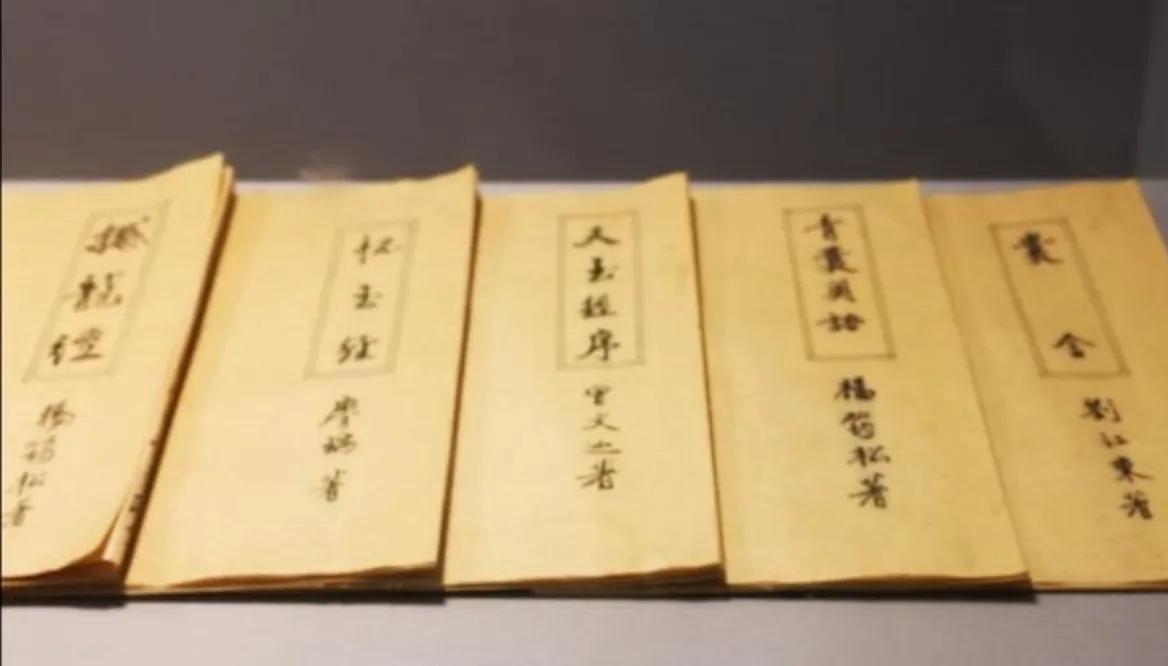 撼龍經
楊筠松著
怀玉經
廖瑀著
天玉經序
曾文辿著
青囊奥語
楊筠松著
囊金
劉江東著